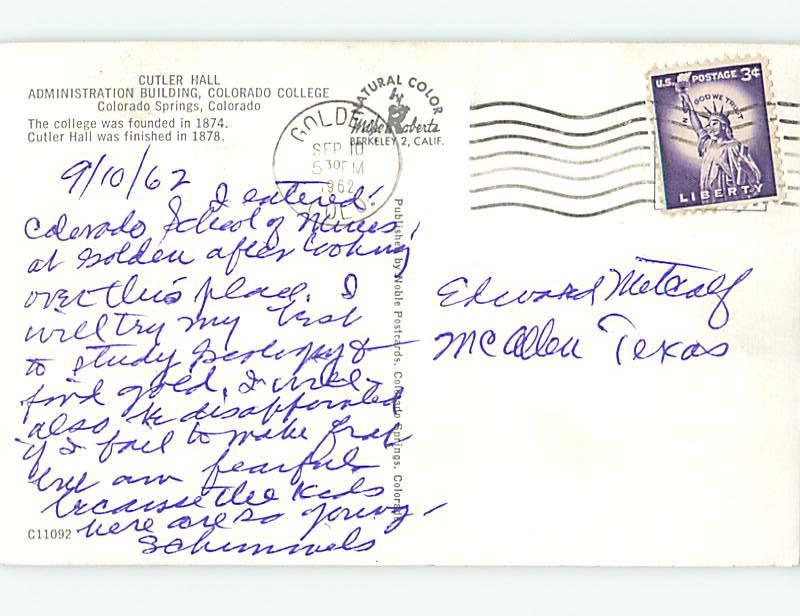 CUTLER HALL
ADMINISTRATION BUILDING, COLORADO COLLEGE
Colorado Springs, Colorado
The college was founded in 1874.
Cutler Hall was finished in 1878.
NATURAL COLOR
Mike Roberts
BERKELEY 2, CALIF.
GOLDEN
SEP 10
5 30 PM
1962
COLO.
U.S. POSTAGE 3¢
IN GOD WE TRUST
LIBERTY
9/10/62
I entered
Colorado School of Mines,
at Golden after looking
over this place. I
will try my best
to study Geology &
find gold. I will
also be disappointed
if I fail to make frat
but am fearful
because the kids
here are so young.
Schimmels
Edward Metcalf
McAllen Texas
Published by Noble Postcards, Colorado Springs, Colorado
C11092